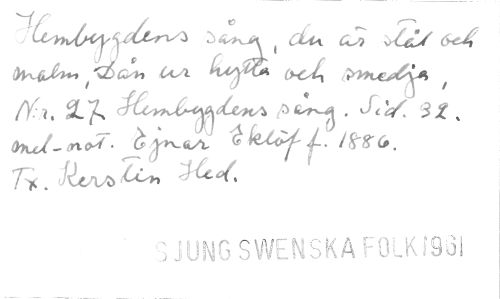 Hembygdens sång, du är stål och
malm, Dån ur hytta och smedja,
Nr. 27 Hembygdens sång. Sid. 32.
mel-not. Ejnar Eklöf f. 1886.
Tx. Kerstin Hed.
SJUNG SWENSKA FOLK 1961